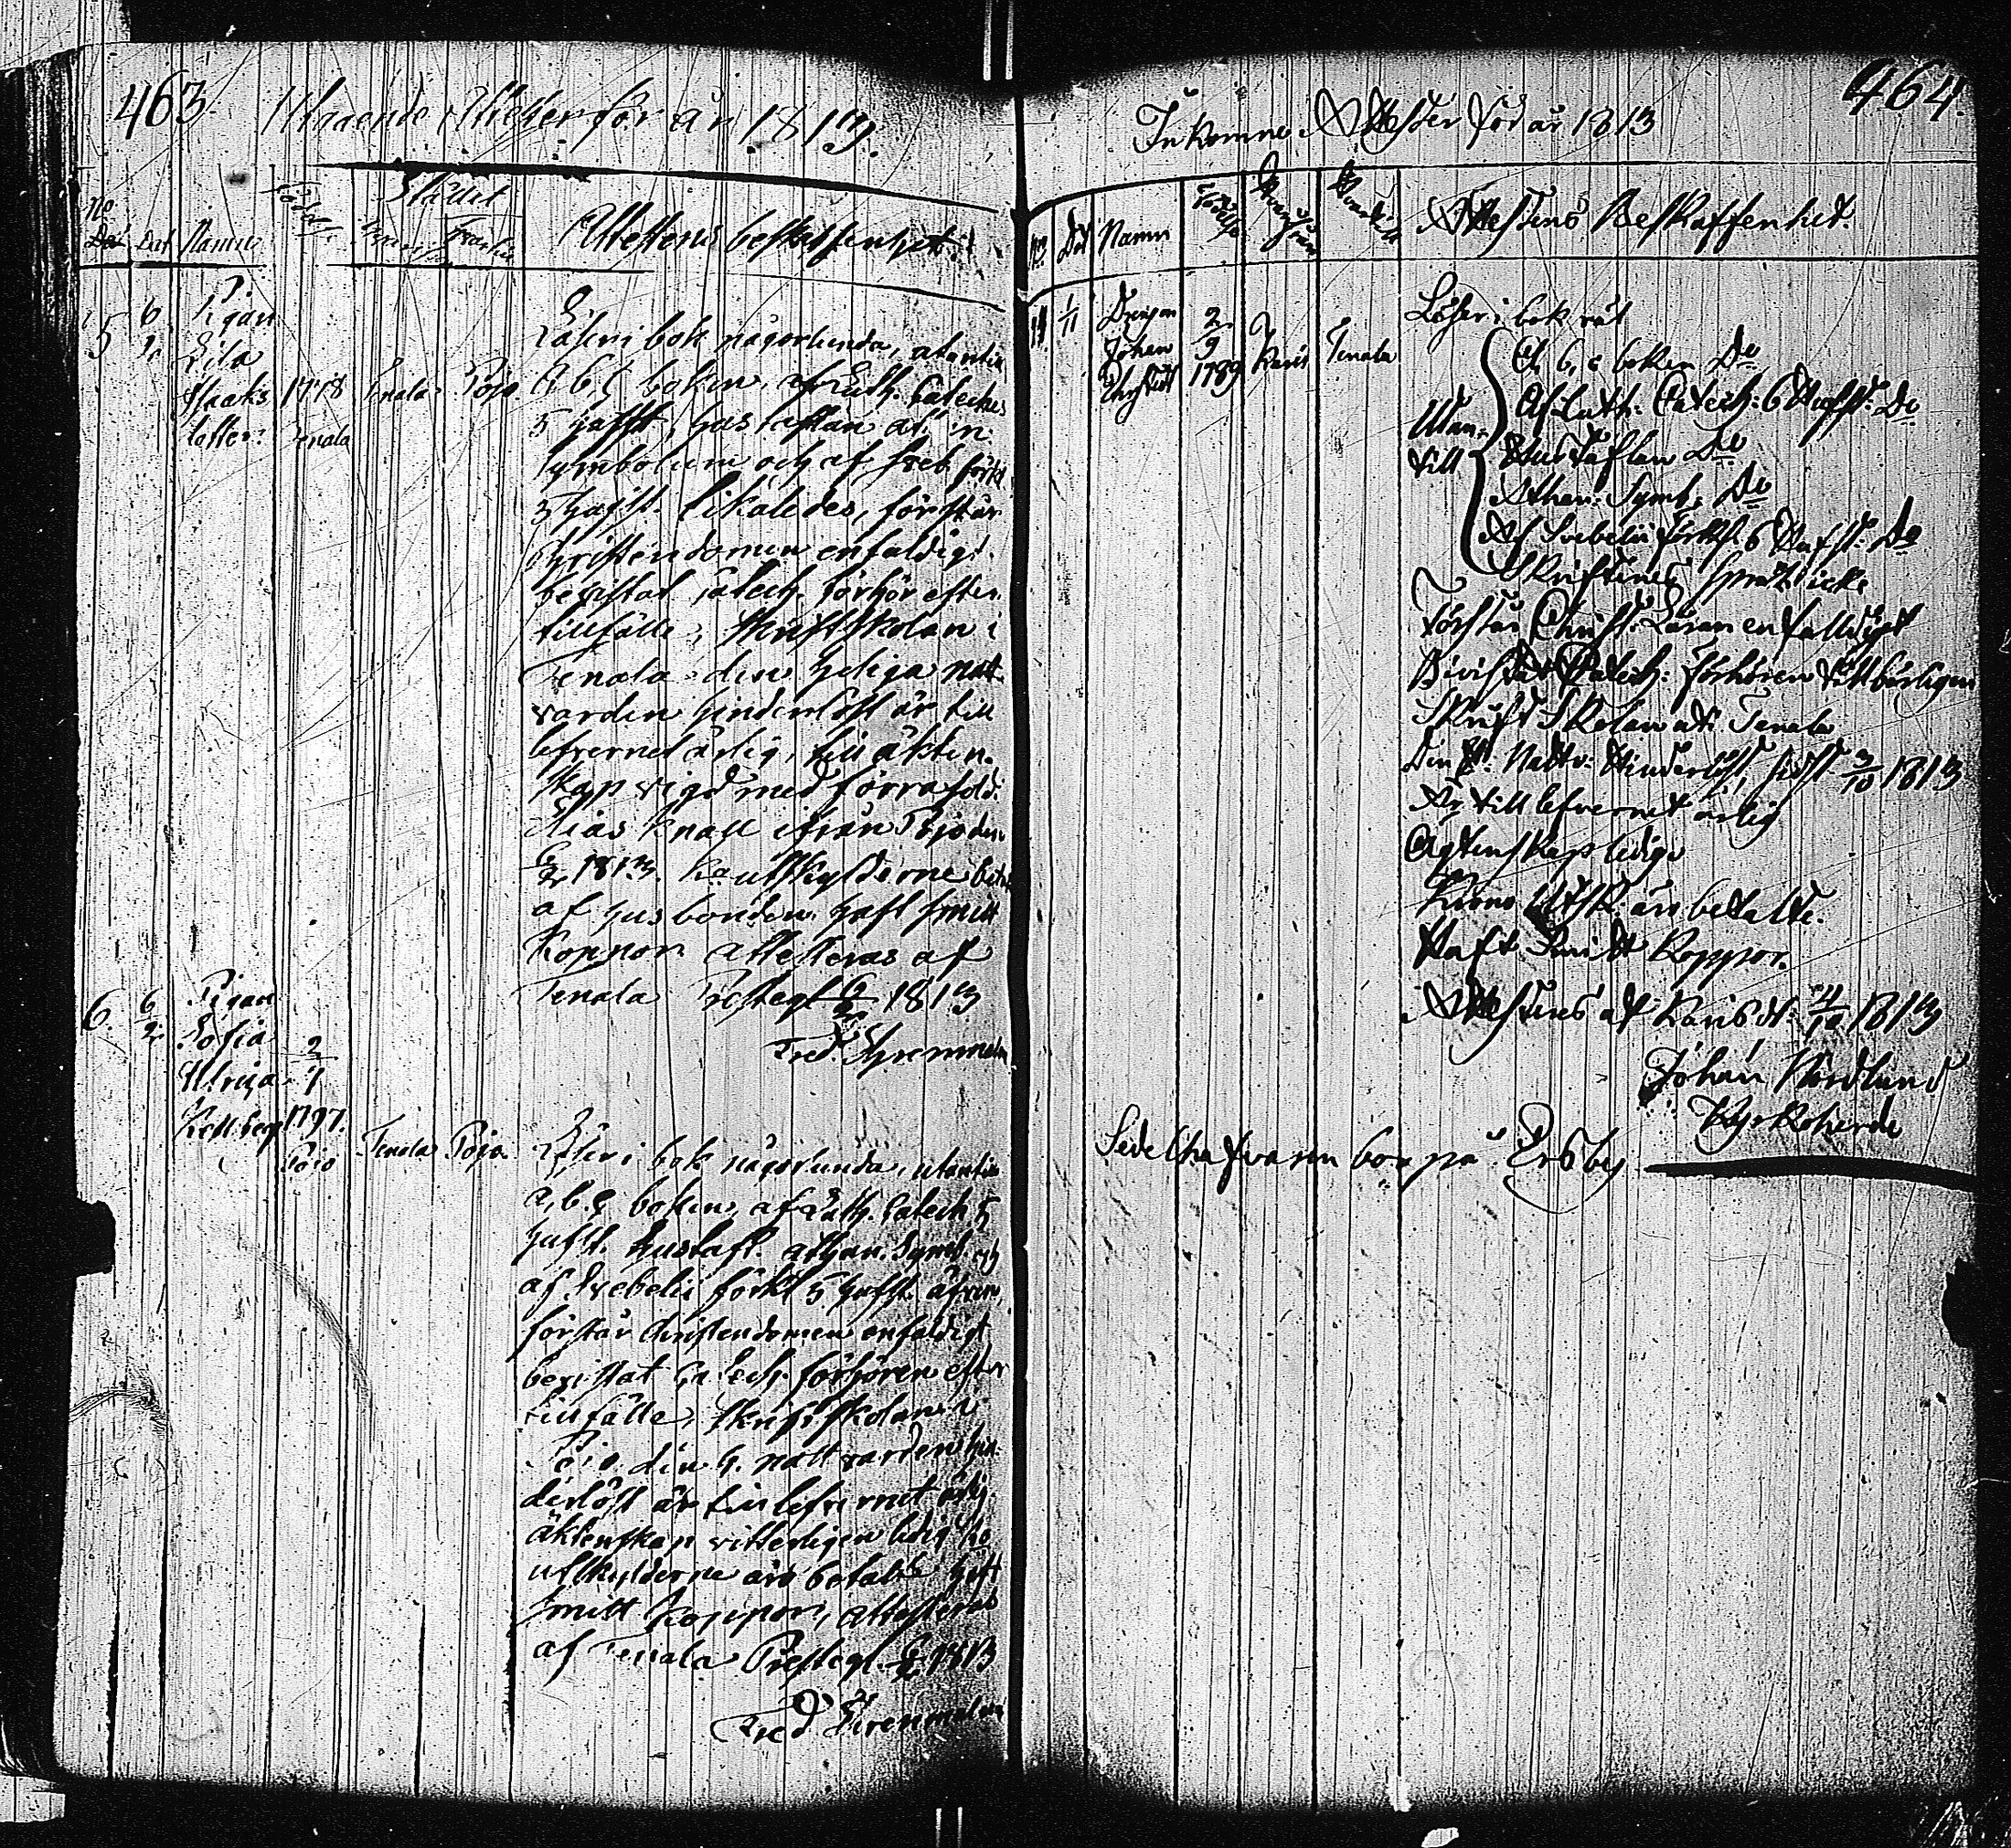 463. Utgående Attester för år 1813.
No Dat Namn Födelse Stället Attestens beskaffenhet
5 6/2 Pigan
Lisa
Isaks
dotter
1778
Tenala
Tenala Pojo
Läser i bok någorlunda, utantill
A b c boken, af Luth. Cateches
5 hufst, hustaflan ath:n
Symbolum och af Sveb. förkl
5 hufst. likaledes, förstår
Christendomen enfaldigt.
bevistat Catech. förhör efter
tillfälle, Skriftskolan i
Tenala den heliga natt
varden hinderlöst är till
lefvernet ärlig, till äkten-
skap vigd med förra sold.
Elias Knall ifrån Pojo den
6/2 1813. Ko utskylderne betal
af husbonden hafl Smitt
Koppor attesteras af
Tenala Prestegl 6/2 1813
Fred Ehrenmalm
6. 6/2 Pigan
Sofia
Ulrica
Kellberg
2/1
1797.
Pojo
Tenala Pojo
Läser i bok någorlunda, utantill
a, b. c boken, af Luth. Catech 5
hufst. hustafl. athan. Symb. och
af Svebelii förkl 5 hufst. äfven,
förstår Christendomen enfaldigt
bevistat Catech. förhören efter
tillfälle, Skriftskolan i
Pojo den h. nattvarden hin
derlöst är till lefvernet ärlig.
äktenskap vitterligen ledig Ko
utskylderne äro betalte haft
Smitt Koppor, attesteras
af Tenala Prestegl. 6/2 1813
Fred Ehrenmalm
464.
Inkomne Attester för år 1813
No Dat Namn Födelse Attestens Beskaffenhet.
14 1/11 Drengen
Johan
Chryströt
2/9
1789
Karis Tenala
Läser i bok rät
Utan-
till
A, b, c boken Do
Af Luth: Catech: 6 Hufst: Do
Hus Taflan Do
Athan: Symb: Do
Af Svebelii förkl 6 Hufst: Do
Skriftenes språk icke
Förstår Christ: Läran enfalldigt
Bivistat Catech: förhören tillbörligen
Skrift Skolan uti Tenala
Den H: Nattv: Hinderlöst, sidst 3/10 1813
Är till lefvernet ärlig
Ägtenskap ledig
Krono Utsk äro betalte.
Haft Smitt Koppor.
Attesteras af Karis d: 4/10 1813
Johan Nordlund
Kyrkoherde
Sedel hafvaren bor på Ersby